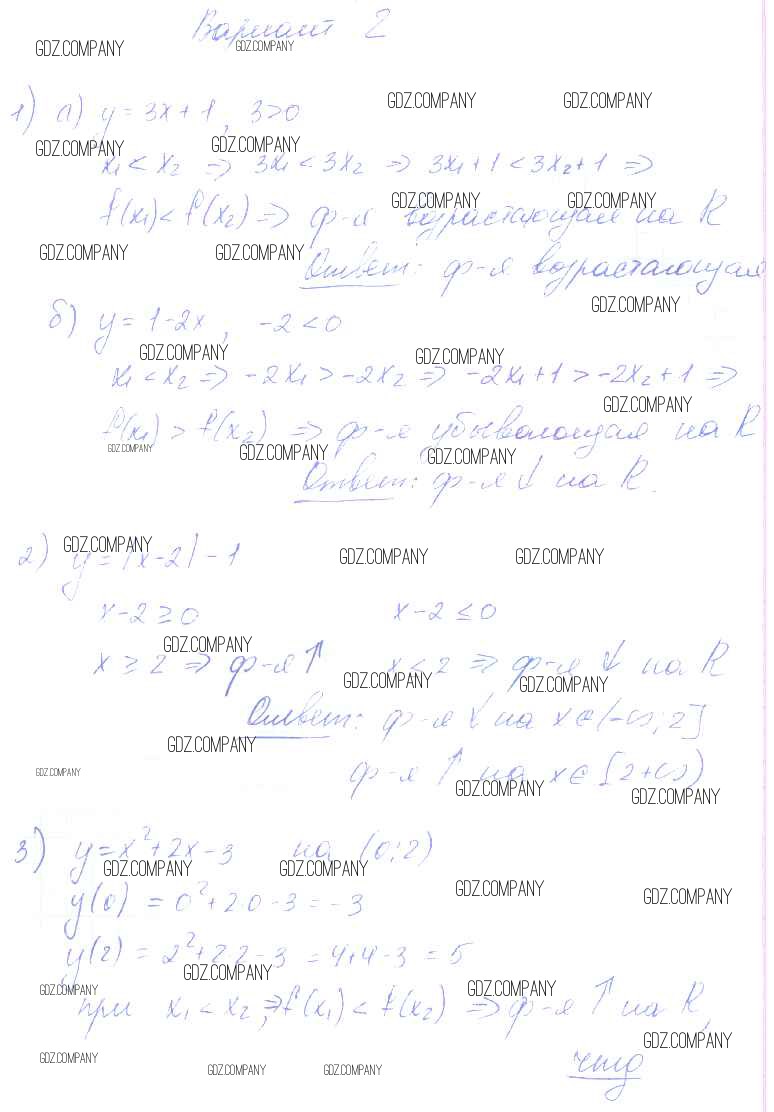 Вариант 2
GDZ.COMPANY GDZ.COMPANY
1) а) y = 3x+1, 3>0
GDZ.COMPANY GDZ.COMPANY
GDZ.COMPANY GDZ.COMPANY
x₁ < x₂ ⇒ 3x₁ < 3x₂ ⇒ 3x₁+1 < 3x₂+1 ⇒
GDZ.COMPANY GDZ.COMPANY
f(x₁) < f(x₂) ⇒ ф-я возрастающая на R
GDZ.COMPANY GDZ.COMPANY
Ответ: ф-я возрастающая
GDZ.COMPANY
б) y = 1-2x, -2<0
GDZ.COMPANY GDZ.COMPANY
x₁ < x₂ ⇒ -2x₁ > -2x₂ ⇒ -2x₁+1 > -2x₂+1 ⇒
GDZ.COMPANY
f(x₁) > f(x₂) ⇒ ф-я убывающая на R
GDZ.COMPANY GDZ.COMPANY GDZ.COMPANY
Ответ: ф-я ↓ на R.
GDZ.COMPANY GDZ.COMPANY GDZ.COMPANY
2) y = |x-2| - 1
x-2 ≥ 0 x-2 ≤ 0
GDZ.COMPANY
x ≥ 2 ⇒ ф-я ↑ x ≤ 2 ⇒ ф-я ↓ на R
GDZ.COMPANY GDZ.COMPANY
Ответ: ф-я ↓ на x∈(-∞;2]
GDZ.COMPANY
GDZ.COMPANY
ф-я ↑ на x∈[2+∞)
GDZ.COMPANY GDZ.COMPANY
3) y = x²+2x-3 на (0;2)
GDZ.COMPANY GDZ.COMPANY
GDZ.COMPANY GDZ.COMPANY
y(0) = 0²+2·0-3 = -3
y(2) = 2²+2·2-3 = 4+4-3 = 5
GDZ.COMPANY
GDZ.COMPANY GDZ.COMPANY
при x₁ < x₂, ⇒ f(x₁) < f(x₂) ⇒ ф-я ↑ на R,
GDZ.COMPANY
чтд
GDZ.COMPANY GDZ.COMPANY GDZ.COMPANY